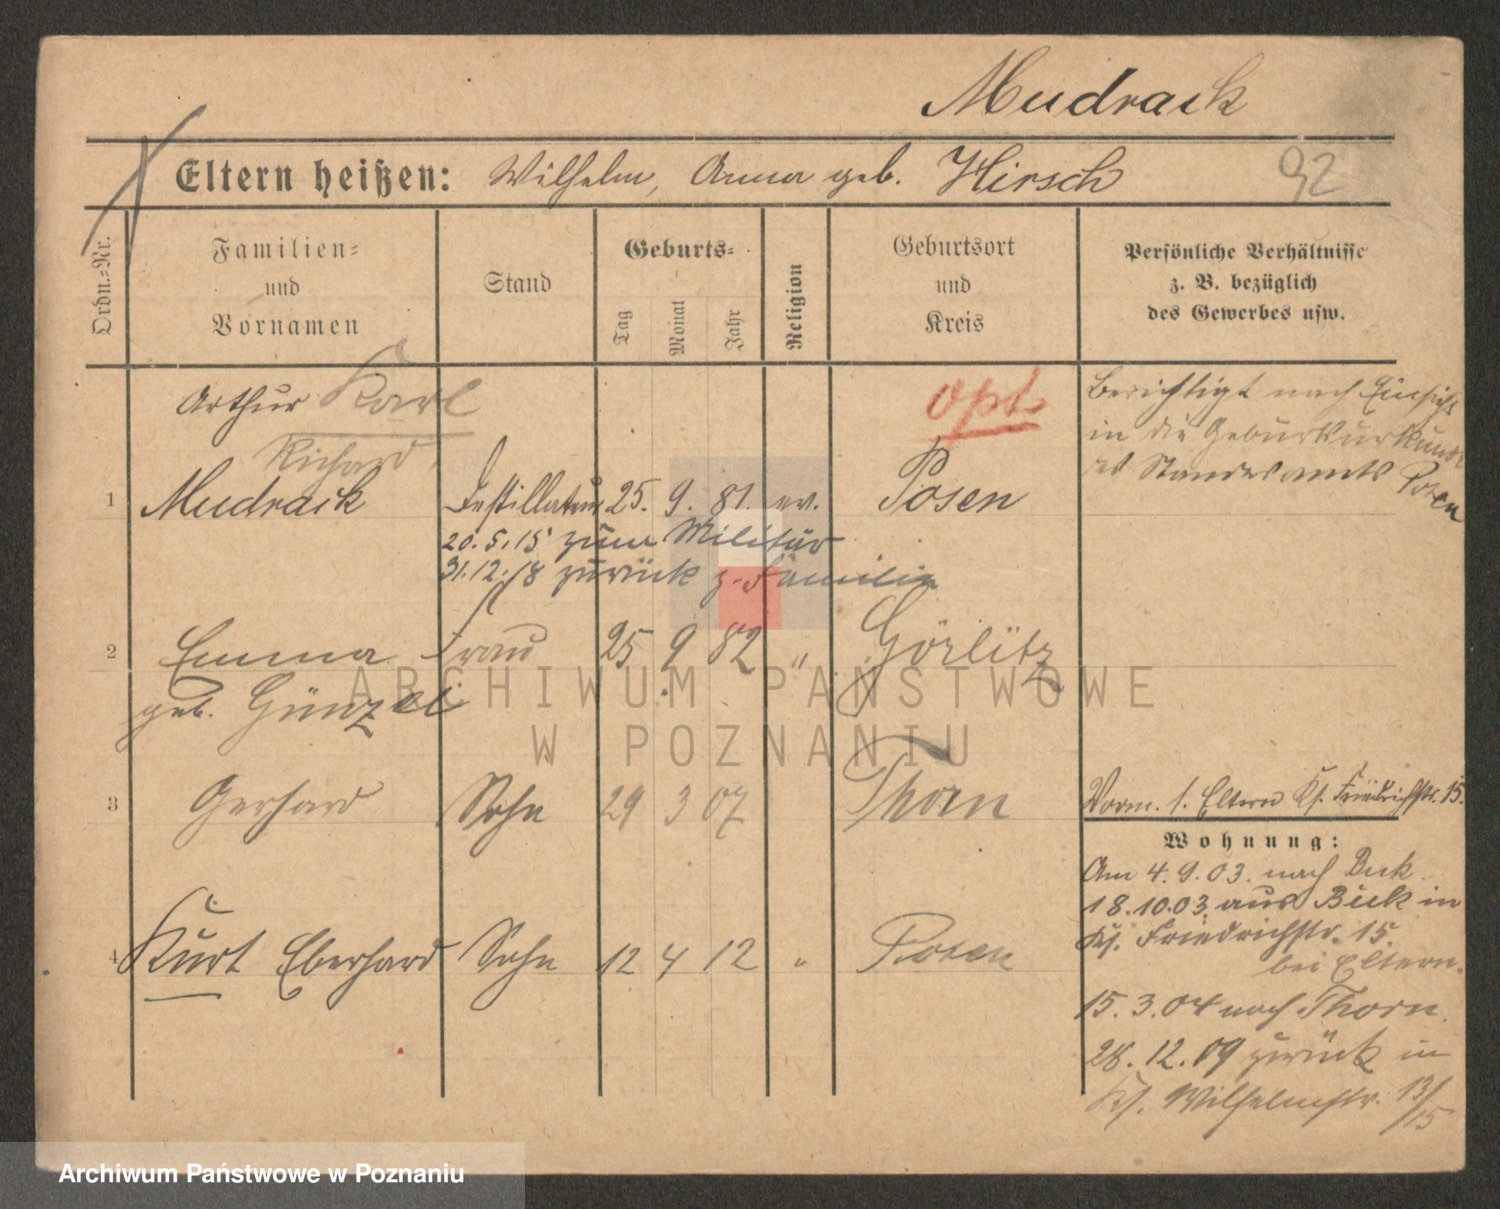 Mudrack
Eltern heißen: Wilhelm, Anna geb. Hirsch 92
Ordn.-Nr.
Familien-
und
Vornamen
Stand
Geburts-
Tag
Monat
Jahr
Religion
Geburtsort
und
Kreis
Persönliche Verhältnisse
z. B. bezüglich
des Gewerbes usw.
Arthur Karl
Richard
1 Mudrack Destillateur 25. 9. 81. ev. Posen
opt
Berichtigt nach Einsicht
in die Geburtsurkunde
des Standesamts Posen
20.5.15 zum Militär
31.12.18 zurück z. Familie
2 Emma Frau 25 9 82 " Görlitz
geb. Günzel
3 Gerhard Sohn 29 3 07 Thorn
4 Kurt Eberhard Sohn 12 4 12 " Posen
Vorm. s. Eltern Ks. Friedrichstr. 15.
Wohnung:
Am 4.9.03. nach Buk
18.10.03 aus Buk in
Ks. Friedrichstr. 15.
bei Eltern.
15.3.04 nach Thorn.
28.12.09 zurück in
Ks. Wilhelmstr. 13/15
ARCHIWUM PAŃSTWOWE
W POZNANIU
Archiwum Państwowe w Poznaniu